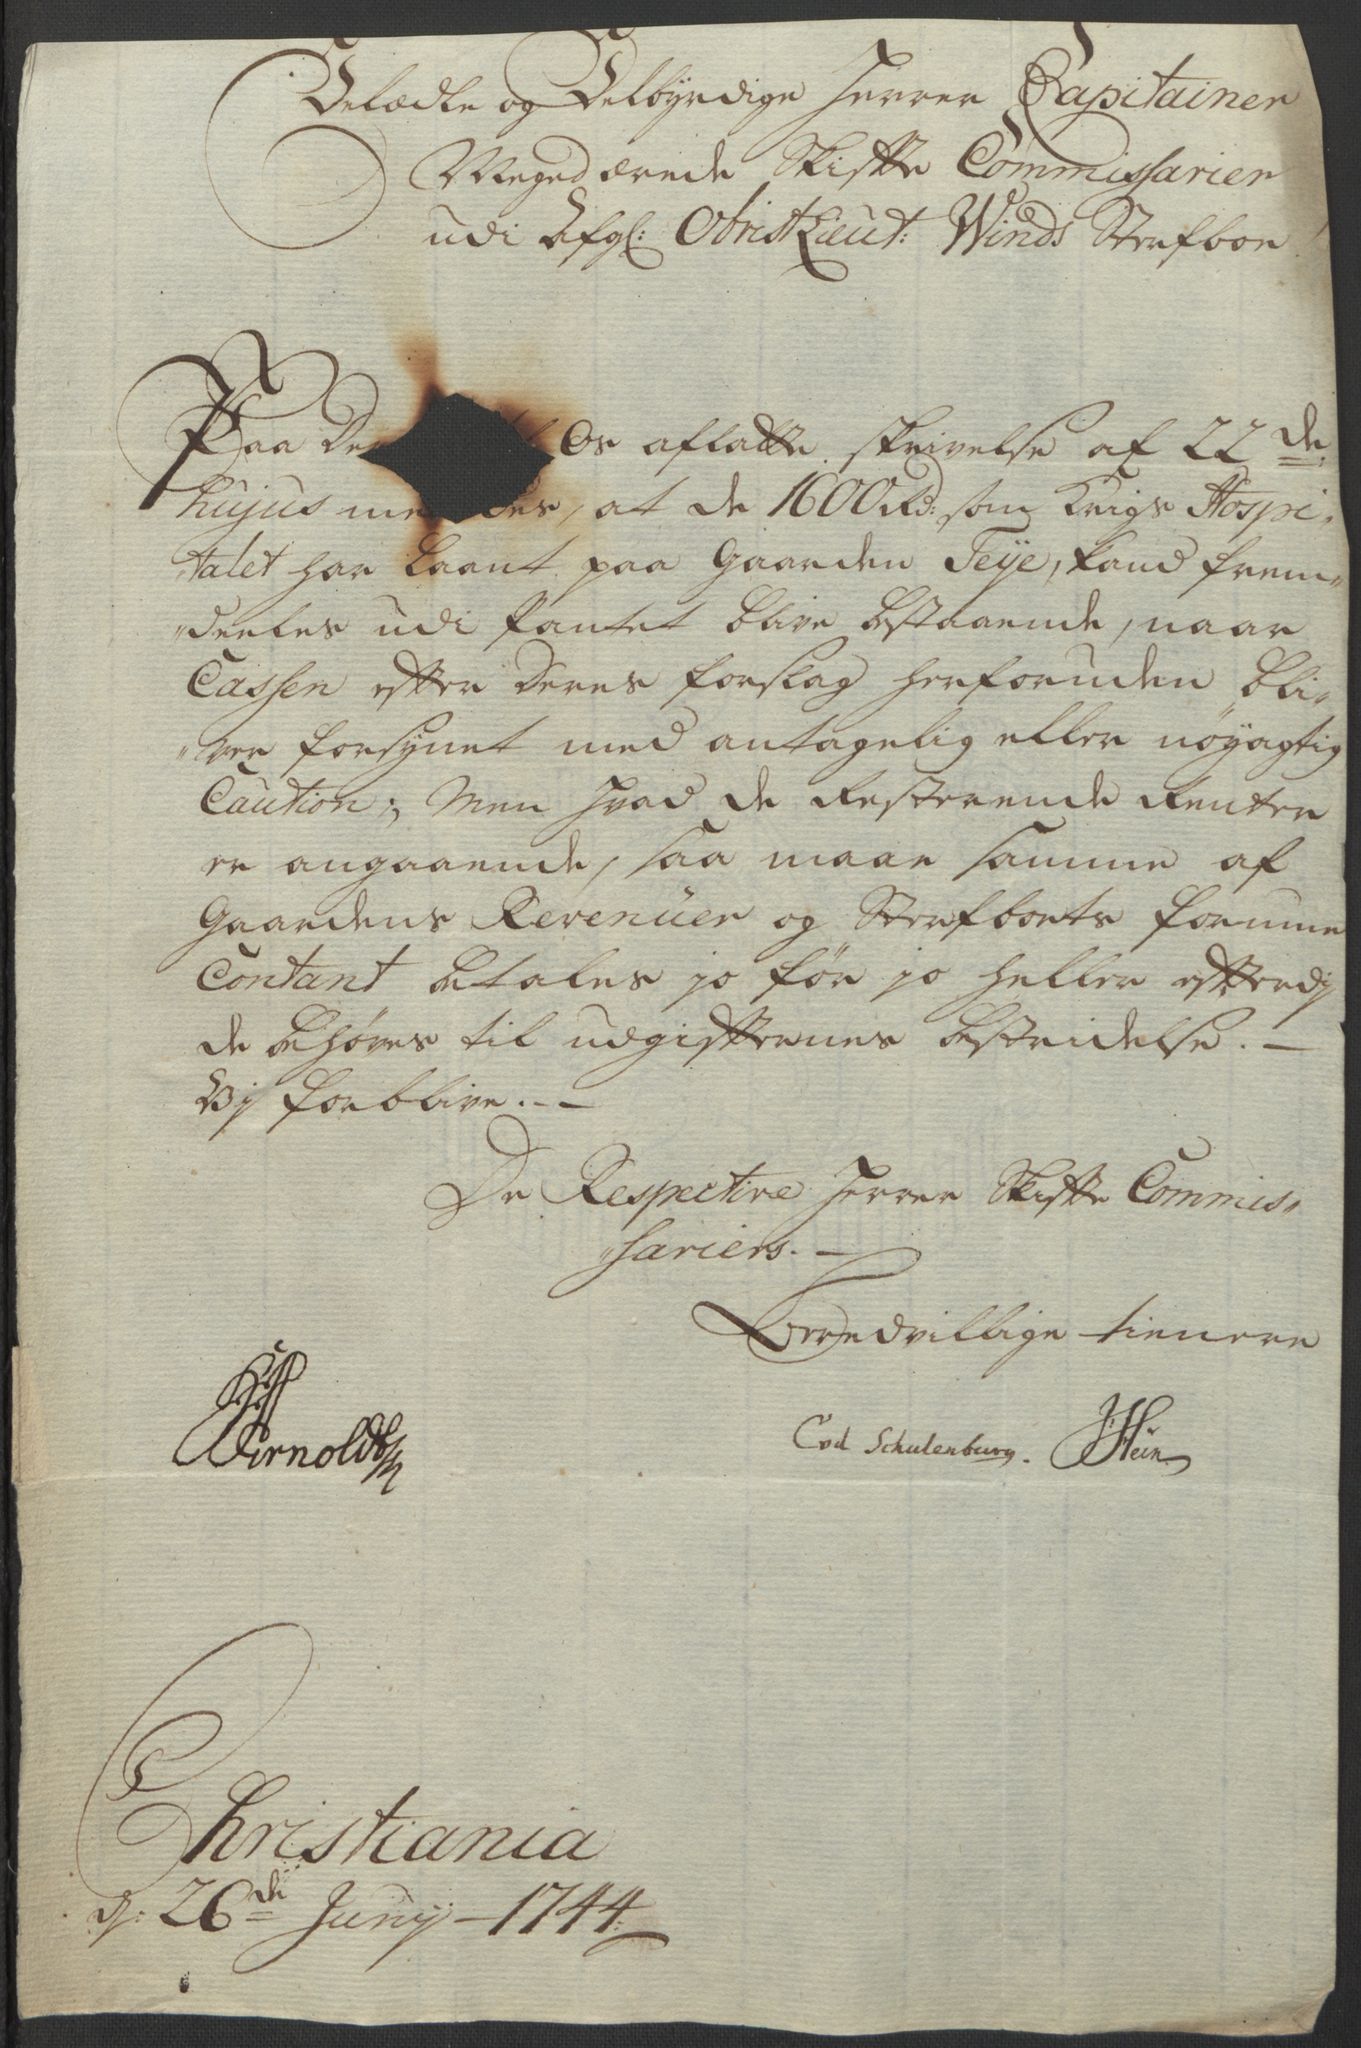 Velædle og Velbyrdige Herrer Capitainer
Meget ærede Skiffte Commissarier
udi Afgl: ObristLieut: Winds Sterfboe
Paa De Os afladte skrivelse af 22de
hujus, at de 1600 Rd: som Krigs Hospi„
„talet har laant paa Gaarden Teÿe, kand frem„
„deeles udi Pantet blive bestaaende, naar
Cassen efter Deres forslag herforuden bli„
„ver forsÿnet med antagelig eller nöÿagtig
Caution; Men hvad de Resterende Renter
er angaaende, saa maae samme af
Gaardens Revenüer og Sterfboets
Contant betales jo før jo heller efterdj
de behøves til udgifternes bestridelse. —
Vj forblive. —
De Respective Herrer Skiffte Commis„
„sariers. —
Beredvillige tienere
Arnoldt
Cvd Schulenburg. Hein
Christiania
d: 26de Junÿ - 1744.